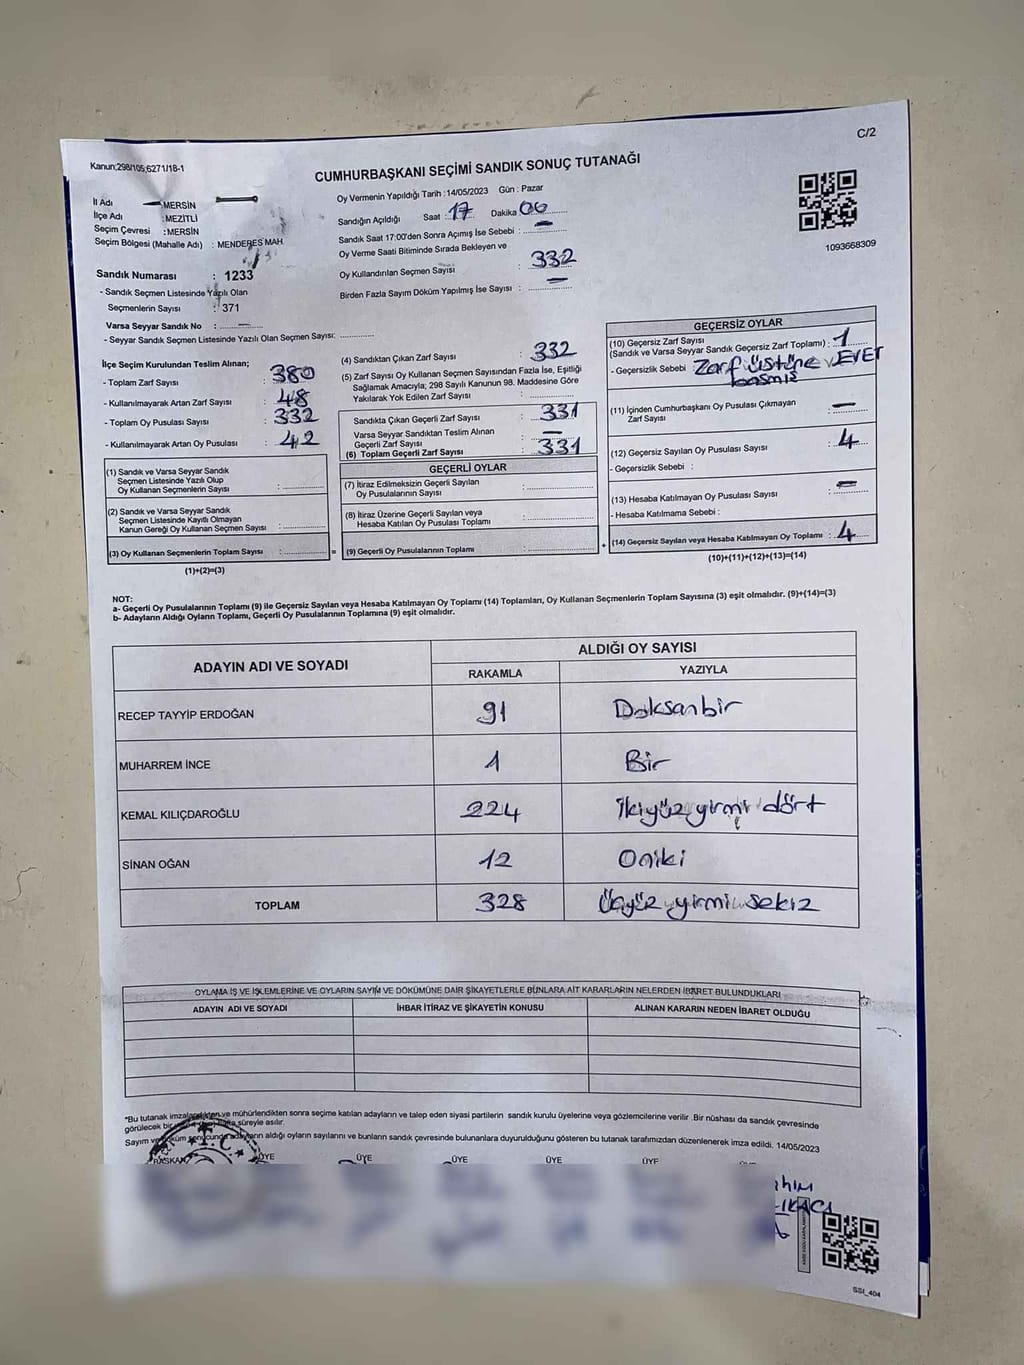 C/2
Kanun;298/105;6271/18-1
CUMHURBAŞKANI SEÇİMİ SANDIK SONUÇ TUTANAĞI
İl Adı : MERSİN
İlçe Adı : MEZİTLİ
Seçim Çevresi : MERSİN
Seçim Bölgesi (Mahalle Adı) : MENDERES MAH.
Sandık Numarası : 1233
- Sandık Seçmen Listesinde Yazılı Olan
Seçmenlerin Sayısı : 371
Varsa Seyyar Sandık No : -
- Seyyar Sandık Seçmen Listesinde Yazılı Olan Seçmen Sayısı: ..............
Oy Vermenin Yapıldığı Tarih : 14/05/2023 Gün : Pazar
Sandığın Açıldığı Saat : 17 Dakika 06
Sandık Saat 17:00'den Sonra Açımış İse Sebebi : -
Oy Verme Saati Bitiminde Sırada Bekleyen ve
Oy Kullandırılan Seçmen Sayısı : 332
Birden Fazla Sayım Döküm Yapılmış İse Sayısı : -
1093668309
İlçe Seçim Kurulundan Teslim Alınan;
- Toplam Zarf Sayısı : 380
- Kullanılmayarak Artan Zarf Sayısı : 48
- Toplam Oy Pusulası Sayısı : 332
- Kullanılmayarak Artan Oy Pusulası : 42
(1) Sandık ve Varsa Seyyar Sandık
Seçmen Listesinde Yazılı Olup
Oy Kullanan Seçmenlerin Sayısı :
(2) Sandık ve Varsa Seyyar Sandık
Seçmen Listesinde Kayıtlı Olmayan
Kanun Gereği Oy Kullanan Seçmen Sayısı :
(3) Oy Kullanan Seçmenlerin Toplam Sayısı : =
(1)+(2)=(3)
(4) Sandıktan Çıkan Zarf Sayısı : 332
(5) Zarf Sayısı Oy Kullanan Seçmen Sayısından Fazla İse, Eşitliği
Sağlamak Amacıyla; 298 Sayılı Kanunun 98. Maddesine Göre
Yakılarak Yok Edilen Zarf Sayısı :
Sandıkta Çıkan Geçerli Zarf Sayısı : 331
Varsa Seyyar Sandıktan Teslim Alınan
Geçerli Zarf Sayısı : -
(6) Toplam Geçerli Zarf Sayısı : 331
GEÇERLİ OYLAR
(7) İtiraz Edilmeksizin Geçerli Sayılan
Oy Pusulalarının Sayısı :
(8) İtiraz Üzerine Geçerli Sayılan veya
Hesaba Katılan Oy Pusulası Toplamı :
(9) Geçerli Oy Pusulalarının Toplamı : +
GEÇERSİZ OYLAR
(10) Geçersiz Zarf Sayısı
(Sandık ve Varsa Seyyar Sandık Geçersiz Zarf Toplamı) : 1
- Geçersizlik Sebebi : Zarf üstüne EVET
basmış
(11) İçinden Cumhurbaşkanı Oy Pusulası Çıkmayan
Zarf Sayısı : -
(12) Geçersiz Sayılan Oy Pusulası Sayısı : 4
- Geçersizlik Sebebi :
(13) Hesaba Katılmayan Oy Pusulası Sayısı : -
- Hesaba Katılmama Sebebi :
(14) Geçersiz Sayılan veya Hesaba Katılmayan Oy Toplamı : 4
(10)+(11)+(12)+(13)=(14)
NOT:
a- Geçerli Oy Pusulalarının Toplamı (9) ile Geçersiz Sayılan veya Hesaba Katılmayan Oy Toplamı (14) Toplamları, Oy Kullanan Seçmenlerin Toplam Sayısına (3) eşit olmalıdır. (9)+(14)=(3)
b- Adayların Aldığı Oyların Toplamı, Geçerli Oy Pusulalarının Toplamına (9) eşit olmalıdır.
ADAYIN ADI VE SOYADI ALDIĞI OY SAYISI
RAKAMLA YAZIYLA
RECEP TAYYİP ERDOĞAN 91 Doksanbir
MUHARREM İNCE 1 Bir
KEMAL KILIÇDAROĞLU 224 İkiyüz yirmi dört
SİNAN OĞAN 12 Oniki
TOPLAM 328 Üçyüz yirmi sekiz
OYLAMA İŞ VE İŞLEMLERİNE VE OYLARIN SAYIM VE DÖKÜMÜNE DAİR ŞİKAYETLERLE BUNLARA AİT KARARLARIN NELERDEN İBARET BULUNDUKLARI
ADAYIN ADI VE SOYADI İHBAR İTİRAZ VE ŞİKAYETİN KONUSU ALINAN KARARIN NEDEN İBARET OLDUĞU
*Bu tutanak imzalandıktan ve mühürlendikten sonra seçime katılan adayların ve talep eden siyasi partilerin sandık kurulu üyelerine veya gözlemcilerine verilir .Bir nüshası da sandık çevresinde
görülecek bir süreyle asılır.
Sayım ve döküm sonucunda adayların aldığı oyların sayılarını ve bunların sandık çevresinde bulunanlara duyurulduğunu gösteren bu tutanak tarafımızdan düzenlenerek imza edildi. 14/05/2023
T.C.
BAŞKAN ÜYE ÜYE ÜYE ÜYE ÜYE
SSI_404